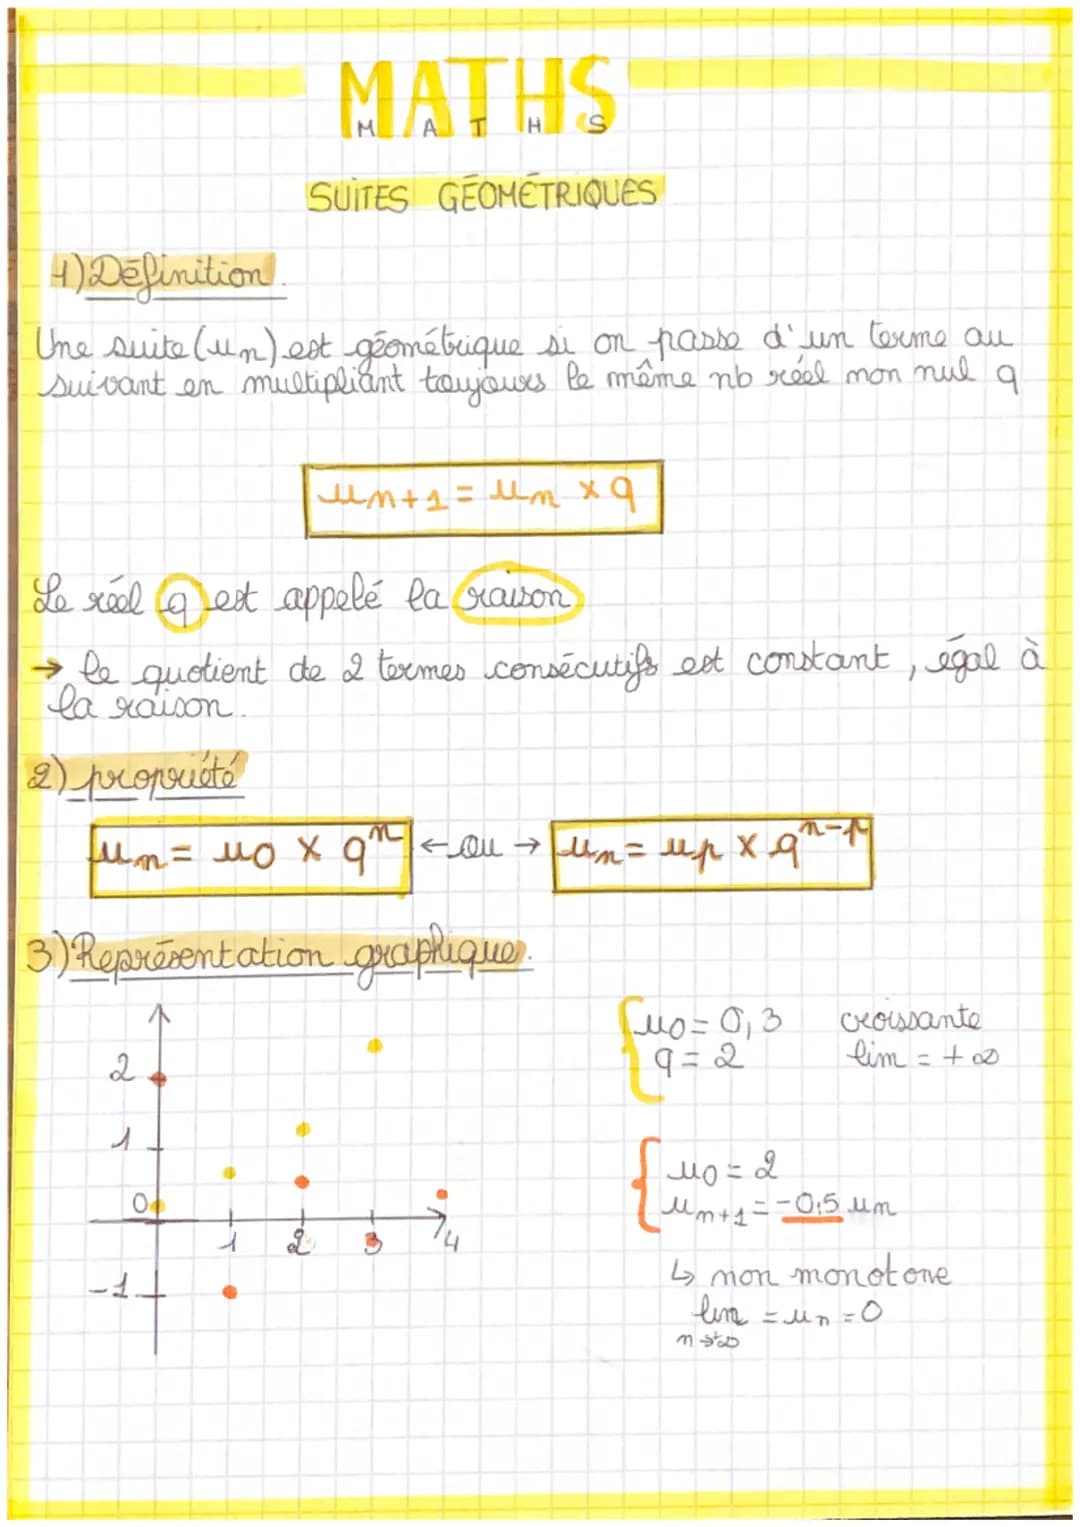 MATHS
M A T H S
SUITES GÉOMÉTRIQUES
1) Définition.
Une suite (un) est géométrique si on passe d'un terme au
suivant en multipliant toujours le même nb réel non nul q
un+1 = un × q
Le réel q est appelé la raison
→ le quotient de 2 termes consécutifs est constant, égal à
la raison.
2) propriété
un = u0 × qⁿ ← ou → un = up × qⁿ⁻ᵖ
3) Représentation graphique.
2
1
0
-1
1 2 3 4
u0 = 0,3 croissante
q = 2 lim = +∞
u0 = 2
un+1 = -0,5 un
↳ non monotone
lim = un = 0
n→+∞